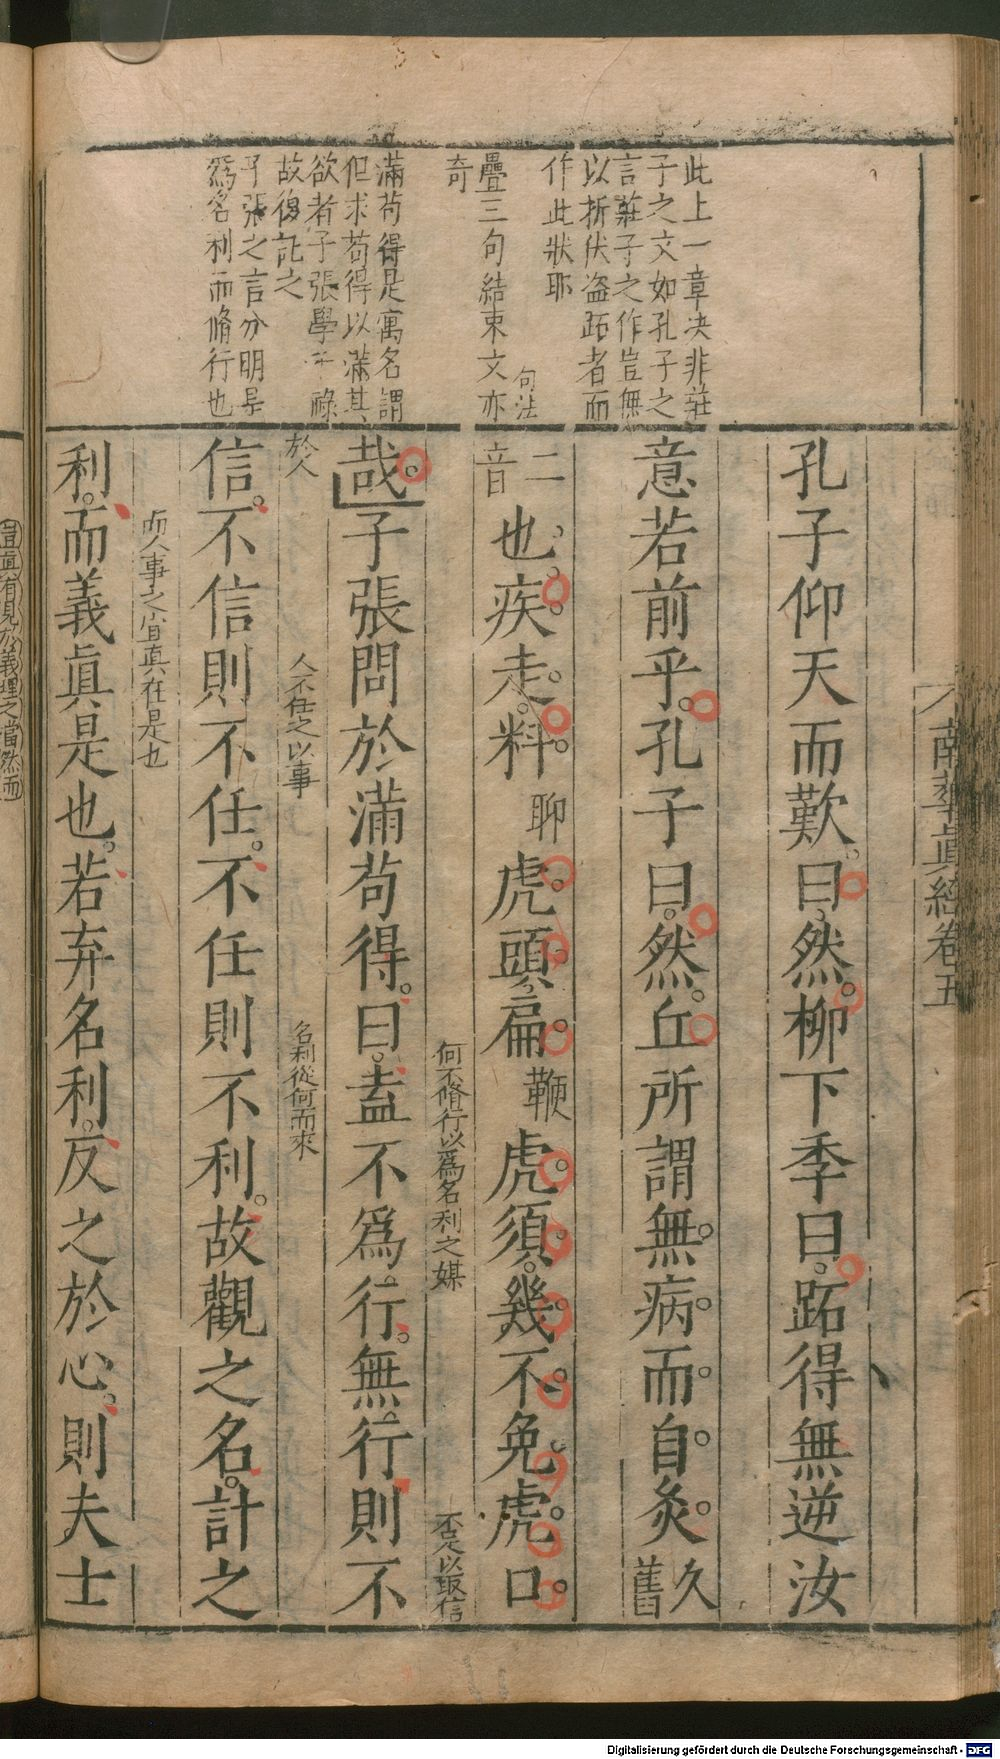 南華眞經卷五
此上一章决非莊
子之文如孔子之
言莊子之作豈無
以折伏盗跖者而
作此狀耶
句法
疊三句結束文亦
奇
滿苟得是寓名謂
但求苟得以滿其
欲者子張學干祿
故復託之
子張之言分明是
爲名利而脩行也
孔子仰天而歎曰然柳下季曰跖得無逆汝
意若前乎孔子曰然丘所謂無病而自灸久舊
二音也疾走料聊虎頭扁鞭虎須幾不免虎口
何不脩行以爲名利之媒
不足以取信
哉子張問於滿苟得曰盍不爲行無行則不
於人
人不任之以事
名利從何而來
信不信則不任不任則不利故觀之名計之
而人事之宜真在是也
利而義眞是也若弃名利反之於心則夫士
宜真有見於義理之當然而
Digitalisierung gefördert durch die Deutsche Forschungsgemeinschaft - DFG